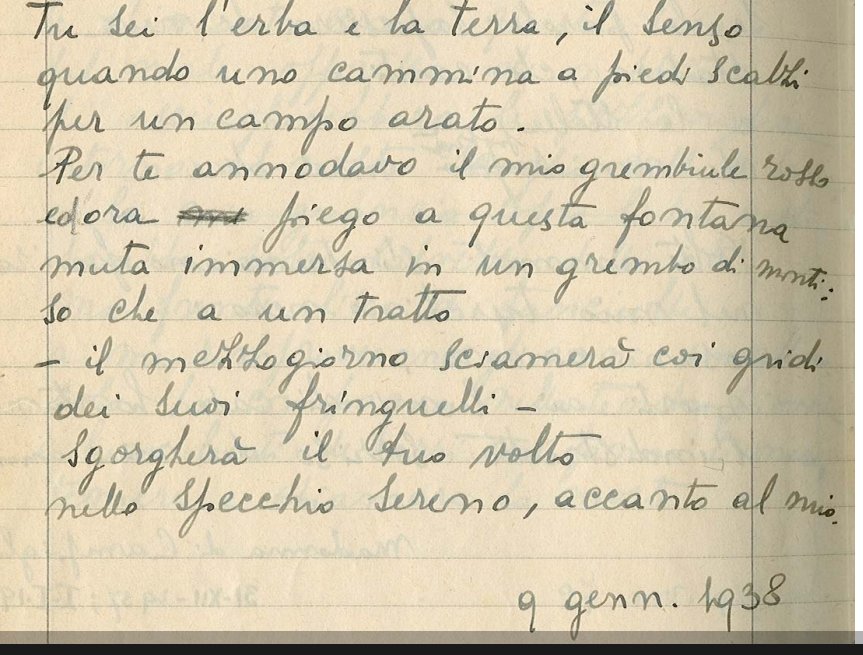 Tu sei l'erba e la terra, il senso
quando uno cammina a piedi scalzi
per un campo arato.
Per te annodavo il mio grembiule rosso
ed ora piego a questa fontana
muta immersa in un grembo di monti:
so che a un tratto
– il mezzogiorno sciamerà coi gridi
dei suoi fringuelli –
sgorgherà il tuo volto
nello specchio sereno, accanto al mio.
9 genn. 1938